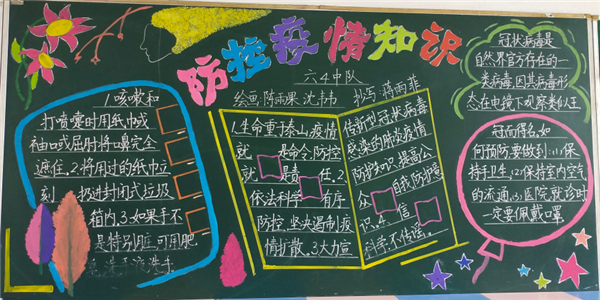 防控疫情知识
六4中队
绘画:陈雨果 沈书韦 抄写:蒋雨菲
1.咳嗽和
打喷嚏时用纸巾或
袖口或屈肘将口鼻完全
遮住。2.将用过的纸巾立
刻 扔进封闭式垃圾
箱内。3.如果手不
是特别脏,可用肥
皂洗手液洗手。
1.生命重于泰山,疫情
就 是命令,防控
就 是责任。2.
依法科学 有序
防控,坚决遏制疫
情扩散。3.大力宣
传新型冠状病毒
感染的肺炎疫情
防控知识,提高公
众 自我防护意
识。4. 信
科学,不传谣。
冠状病毒是
自然界官方存在的一
类病毒,因其病毒形
态在电镜下观察类似王
冠而得名。如
何预防要做到:(1)保
持手卫生;(2)保持室内空气
的流通;(3)医院就诊时
一定要佩戴口罩